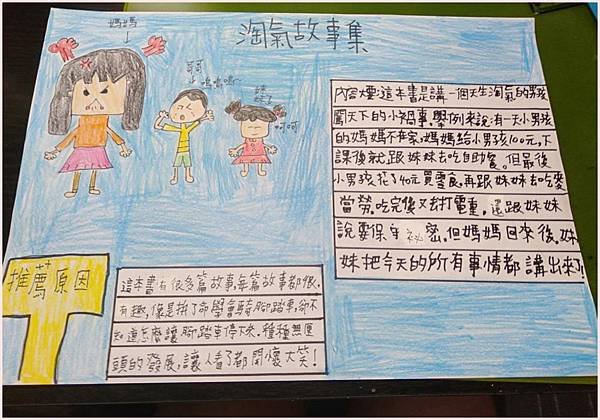 淘氣故事集
媽媽
哥哥
嗚嗚嗚~
妹妹
呵呵
內容煙:這本書是講一個天生淘氣的男孩
闖天下的小禍事,舉例來說:有一天小男孩
的媽媽不在家,媽媽給小男孩100元,下
課後就跟妹妹去吃自助餐。但最後
小男孩花了40元買零食,再跟妹妹去吃麥
當勞,吃完後又打電重,還跟妹妹
說要保守祕密。但媽媽回來後,妹
妹把今天的所有事情都講出來了
推薦原因
這本書有很多篇故事,每篇故事都很
有趣,像是拼了命學會騎腳踏車,卻不
知道怎麼讓腳踏車停下來。種種無厘
頭的發展,讓人看了都開懷大笑!